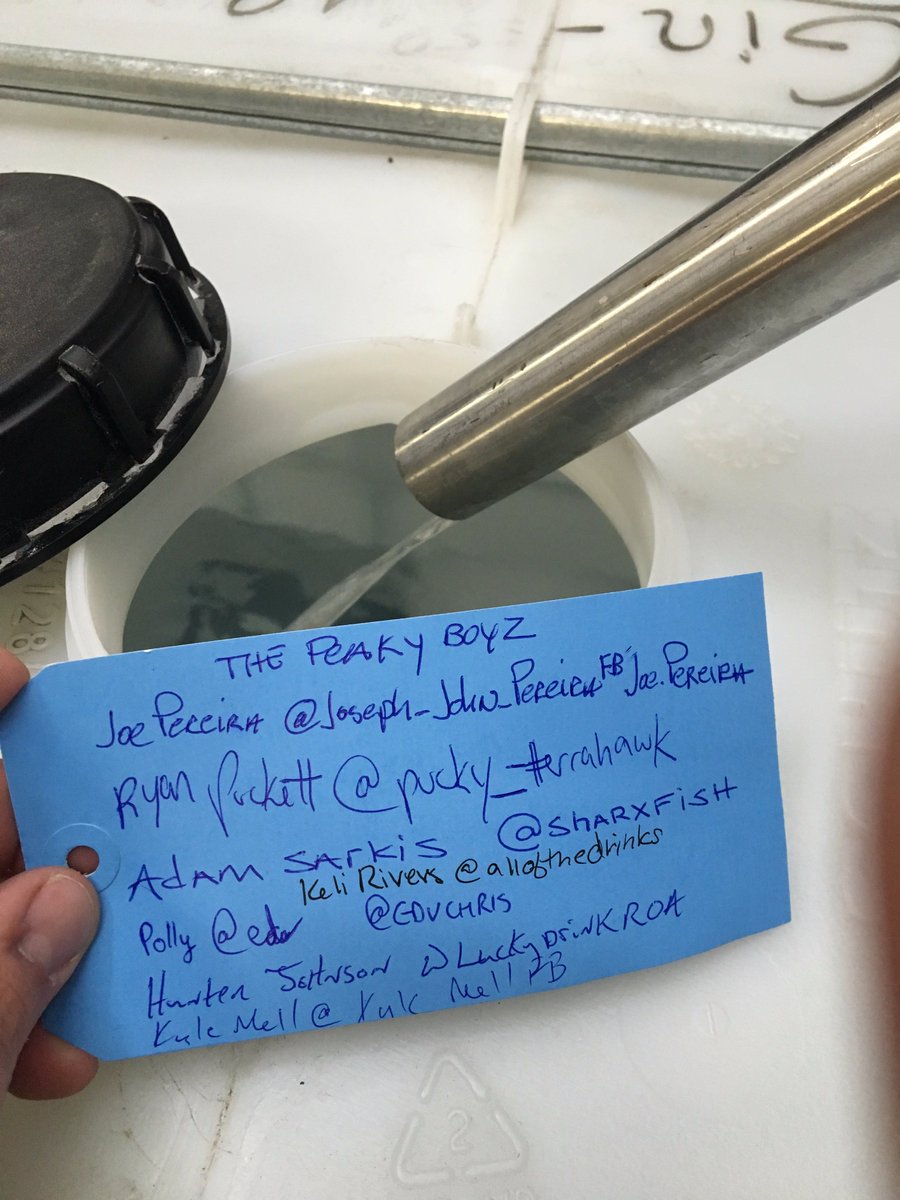 Gin -
THE PEAKY BOYZ
Joe Pereira @Joseph_John_Pereira FB Joe.Pereira
Ryan Puckett @pucky_terrahawk
Adam Sarkis @SHARXFISH
Keli Rivers @allofthedrinks
Polly @edv @EDVCHRIS
Hunter Johnson @LuckyDrinKROA
Kyle Mell @ Kyle Mell FB
2